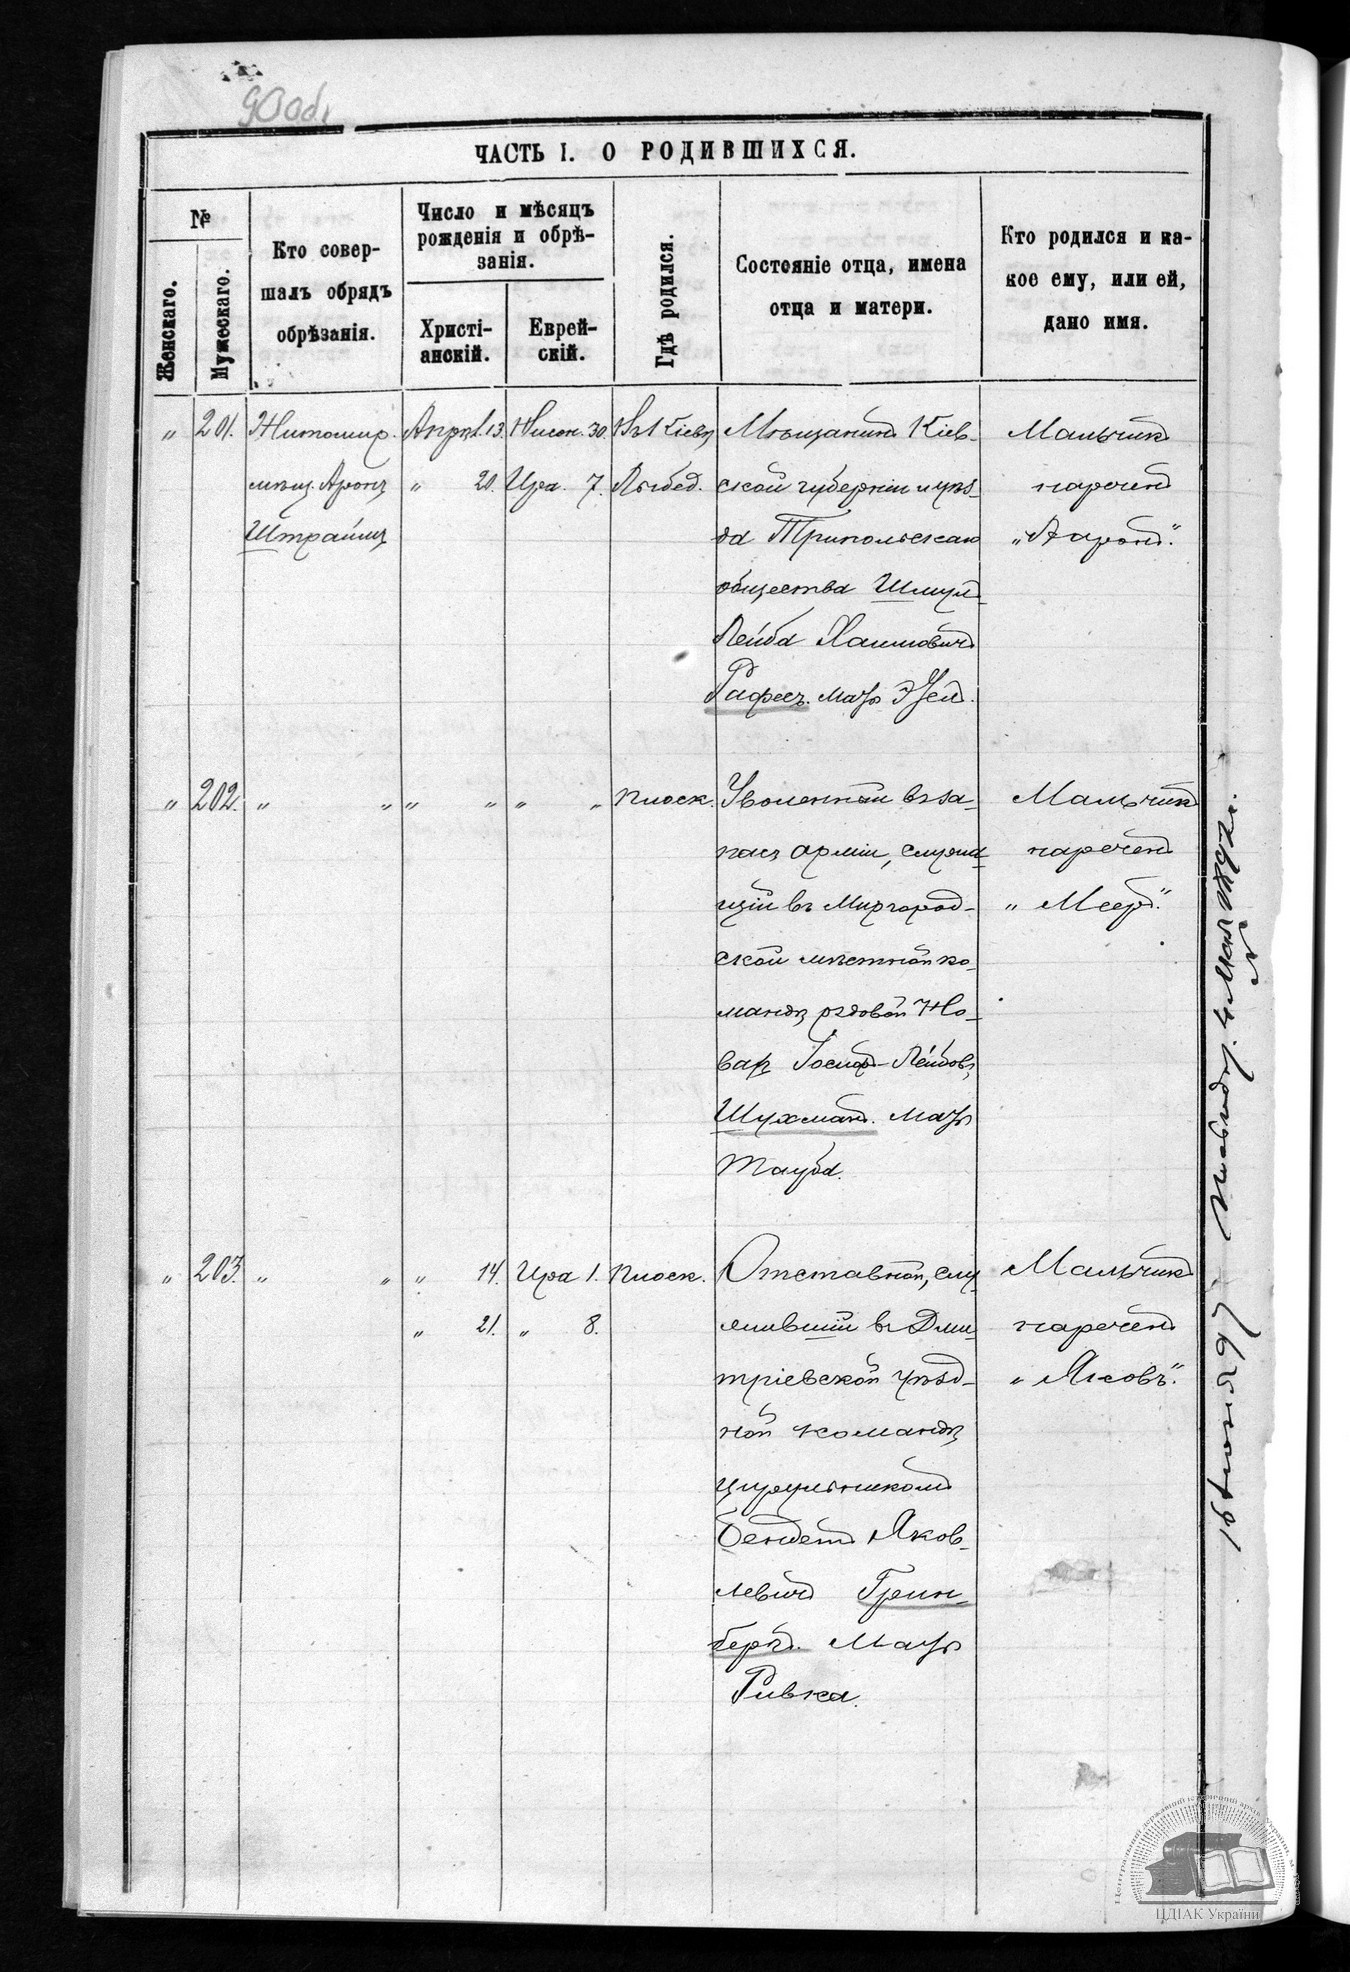 90об.
ЧАСТЬ I. О РОДИВШИХСЯ.
№
Женскаго.
Мужескаго.
Кто совер-
шалъ обрядъ
обрѣзанія.
Число и мѣсяцъ
рожденія и обрѣ-
занія.
Христі-
анскій.
Еврей-
скій.
Гдѣ родился.
Состояніе отца, имена
отца и матери.
Кто родился и ка-
кое ему, или ей,
дано имя.
„ 201.
Житомир.
мѣщ. Аронъ
Штрайцъ
Апрѣл. 13.
„ 20.
Нисон. 30.
Ира. 7.
Въ Кіевѣ
Лыбед.
Мѣщанинъ Кіев-
ской губерніи и уѣз-
да Трипольскаго
общества Шмулъ
Лейба Хаимовичъ
Рафесъ. Мать Этел.
Мальчикъ
нареченъ
„Аронъ".
„ 202. „ „ „ „ „ „
Плоск.
Уволенный въ за-
пасъ арміи, служа-
щій въ Миргород-
ской мѣстной ко-
мандѣ рядовой Но-
Іосифъ Лейбов.
Шухманъ. Мать
Тауба.
Мальчикъ
нареченъ
„Меер".
„ 203. „ „
„ 14.
„ 21.
Ира 1.
„ 8.
Плоск.
Отставной, слу-
жившій въ Дми-
тріевской уѣзд-
ной командѣ
цирульникомъ
Бендетъ Яков-
левичъ Грин-
бергъ. Мать
Ривка.
Мальчикъ
нареченъ
„Яковъ".
ЦДІАК України